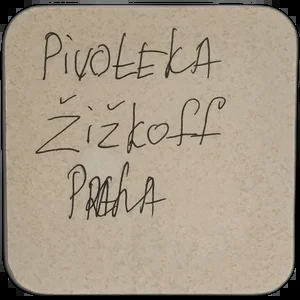 PIVOTEKA
ŽIŽKOFF
PRAHA